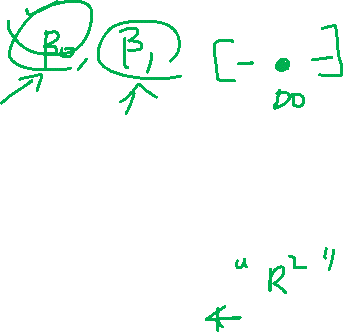 β₀, β₁ [ - • - ]
DO
"R²"